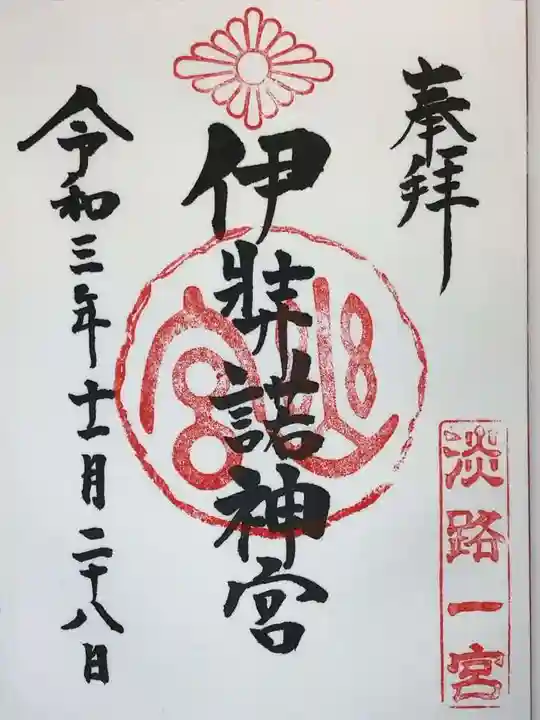 奉拝
淡路一宮
伊弉諾神宮
令和三年十一月二十八日